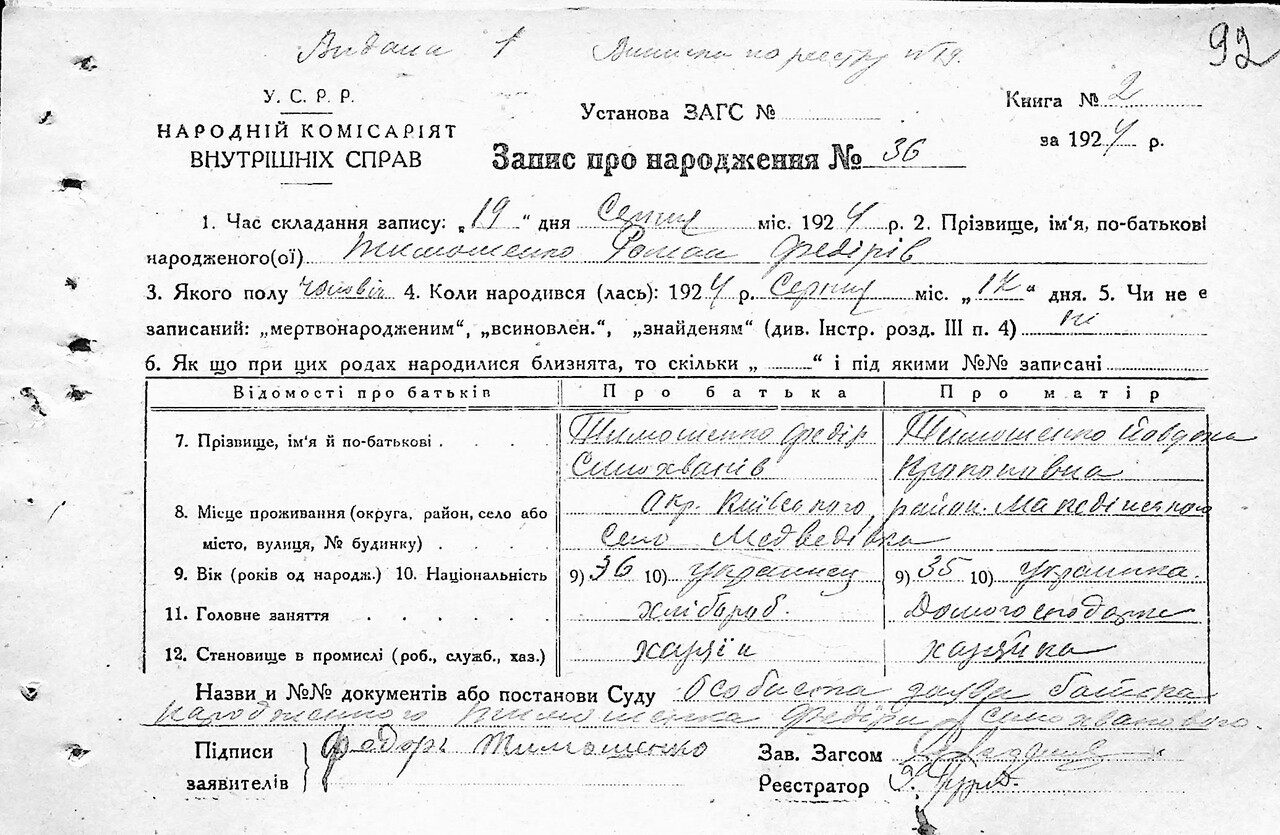 Видана 1 Виписка по реєстру № 19. 92
У. С. Р. Р.
НАРОДНІЙ КОМІСАРІЯТ
ВНУТРІШНІХ СПРАВ
Установа ЗАГС №
Книга № 2
за 1924 р.
Запис про народження № 36
1. Час складання запису: „19“ дня Серпня міс. 1924 р. 2. Прізвище, ім‘я, по-батькові
народженого(ої) Тимошенко Роман Федірів
3. Якого полу чоловіч 4. Коли народився (лась): 1924 р. Серпня міс. „12“ дня. 5. Чи не є
записаний: „мертвонародженим“, „всиновлен.“, „знайденям“ (див. Інстр. розд. III п. 4) ні
6. Як що при цих родах народилися близнята, то скільки „ “ і під якими №№ записані
Відомості про батьків Про батька Про матір
7. Прізвище, ім‘я й по-батькові Тимошенко Федір Тимошенко Йовдоха
Самохванів
8. Місце проживання (округа, район, село або Окр. Київського район.
місто, вулиця, № будинку) Село Медведівка
9. Вік (років од народж.) 10. Національність 9) 36 10) Украинец 9) 35 10) Украинка.
11. Головне заняття хлібароб. Домогосподарка
12. Становище в промислі (роб., служб., хаз.) хазяїн хазяйка
Назви и №№ документів або постанови Суду Особиста заява батька
народженного Тимошенка Федіра Самохванового.
Підписи Федоръ Тимошенко Зав. Загсом
заявителів Реєстратор